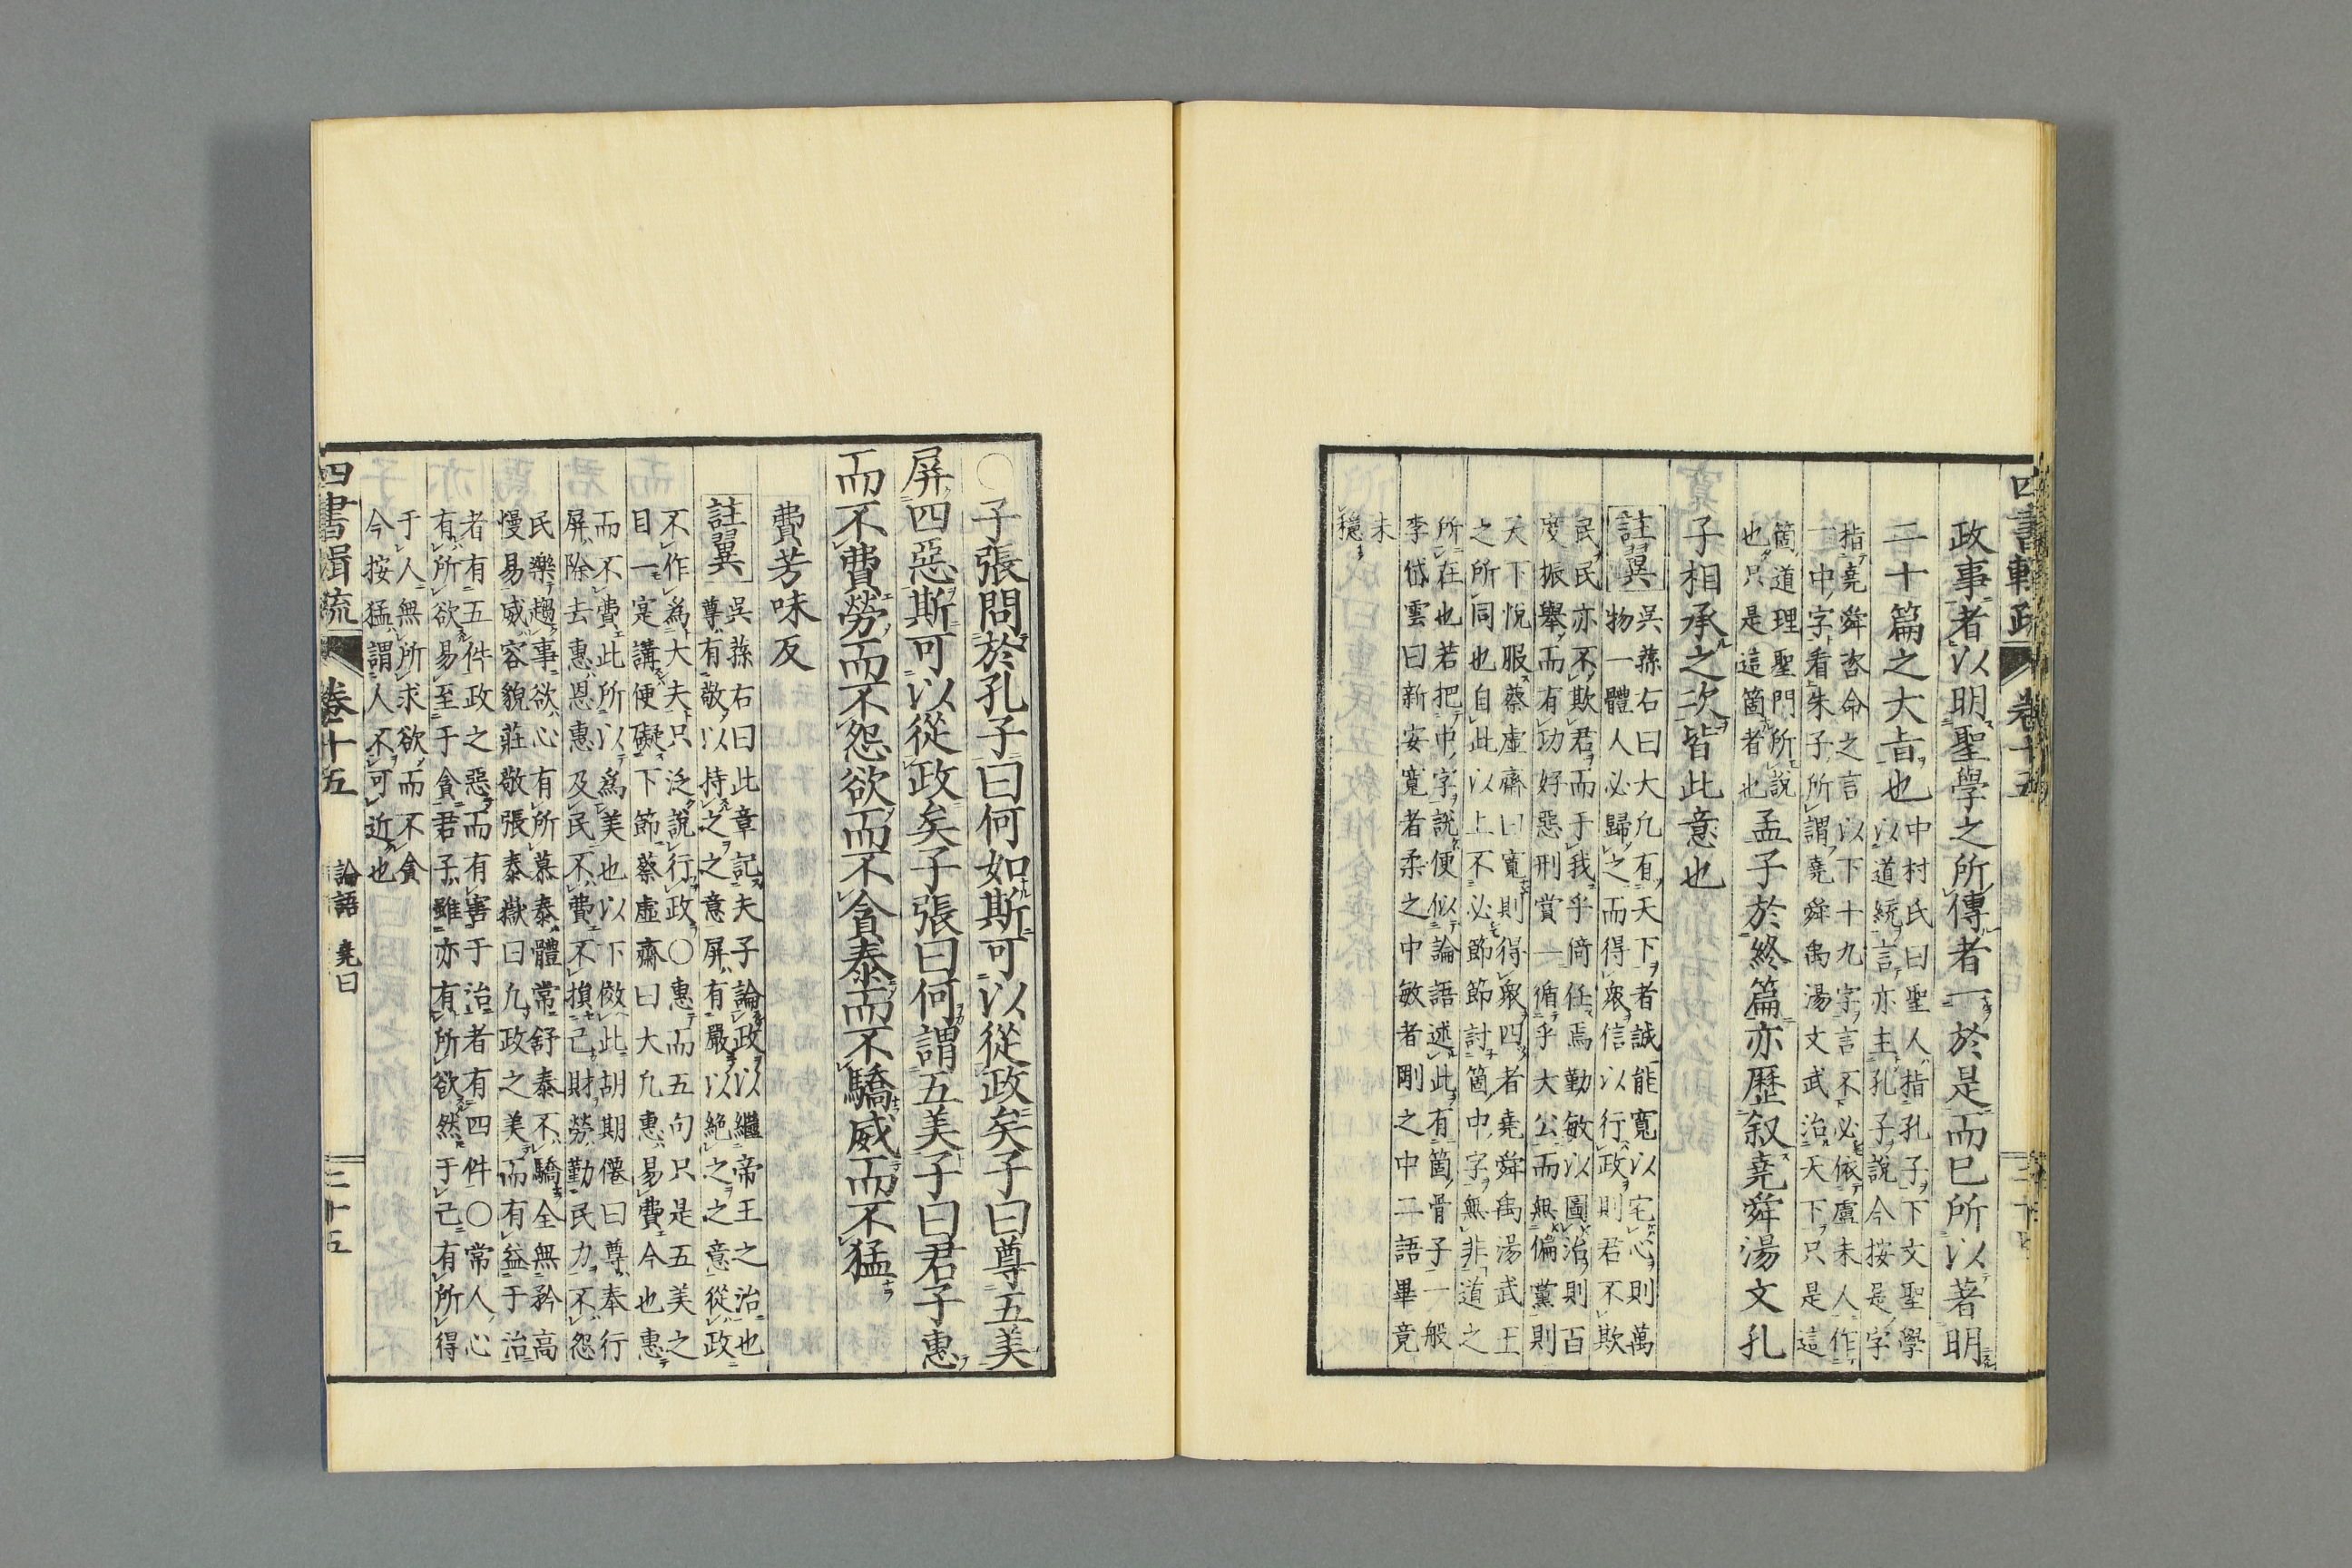 政事者以明聖學之所傳者一於是而已所以著明
二十篇之大旨也
中村氏曰聖人指孔子下文聖學
以道統言亦主孔子說今按是字
指堯舜咨命之言以下十九字言不必依盧未人作
一中字看朱子所謂堯舜禹湯文武治天下只是這
箇道理聖門所說
也只是這箇者也
孟子於終篇亦歷叙堯舜湯文孔
子相承之次皆此意也
註翼
吳蓀右曰大凢有天下者誠能寬以宅心則萬
物一體人必歸之而得衆信以行政則君不欺
民民亦不欺君而于我乎倚任焉勤敏以圖治則百
度振舉而有功好惡刑賞一循乎大公而無偏黨則
天下悅服蔡虛齋曰寬則得衆四者堯舜禹湯武王
之所同也自此以上不必節節討箇中字無非道之
所在也若把中字說便似論語述此有箇骨子一般
李岱雲曰新安寬者柔之中敏者剛之中二語畢竟
未
穩
四書輯疏
卷十五
○子張問於孔子曰何如斯可以從政矣子曰尊五美
屏四惡斯可以從政矣子張曰何謂五美子曰君子惠
而不費勞而不怨欲而不貪泰而不驕威而不猛
費芳味反
註翼
吳蓀右曰此章記夫子論政以繼帝王之治也
尊有敬以持之之意屏有嚴以絶之之意從政
不作為大夫只泛說行政○惠而五句只是五美之
目一寔講便礙下節蔡虛齋曰大凢惠易費今也惠
而不費此所以為美也以下倣此胡期僊曰尊奉行
屏除去惠恩惠及民不費不損己財勞勤民力不怨
民樂趨事欲心有所慕泰體常舒泰不驕全無矜高
慢易威容貌莊敬張泰嶽曰凢政之美而有益于治
者有五件政之惡而有害于治者有四件○常人心
有所欲易至于貪君子雖亦有所欲然于己有所得
于人無所求欲而不貪
今按猛謂人不可近也
四書輯疏
卷十五
論語
堯曰
二十五